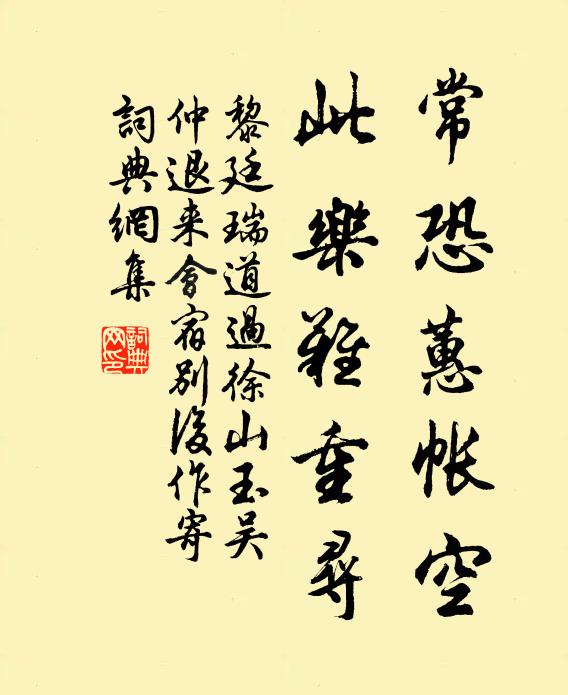 常恐蕙帐空
此樂難重尋
黎廷瑞道過徐山玉吴
仲退来會宿别後作寄
詞典網集
詞典网印